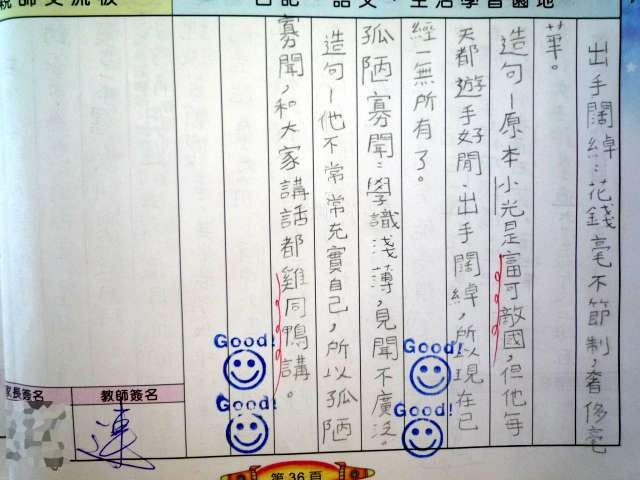 日記、語文、生活學習園地
親師交流板
出手闊綽：花錢毫不節制，奢侈豪
華。
造句－原本小光是富可敵國，但他每
天都遊手好閒、出手闊綽，所以現在已
經一無所有了。
孤陋寡聞：學識淺薄，見聞不廣泛。
造句－他不常常充實自己，所以孤陋
寡聞，和大家講話都雞同鴨講。
Good!
Good!
Good!
Good!
家長簽名
教師簽名
連
第36頁